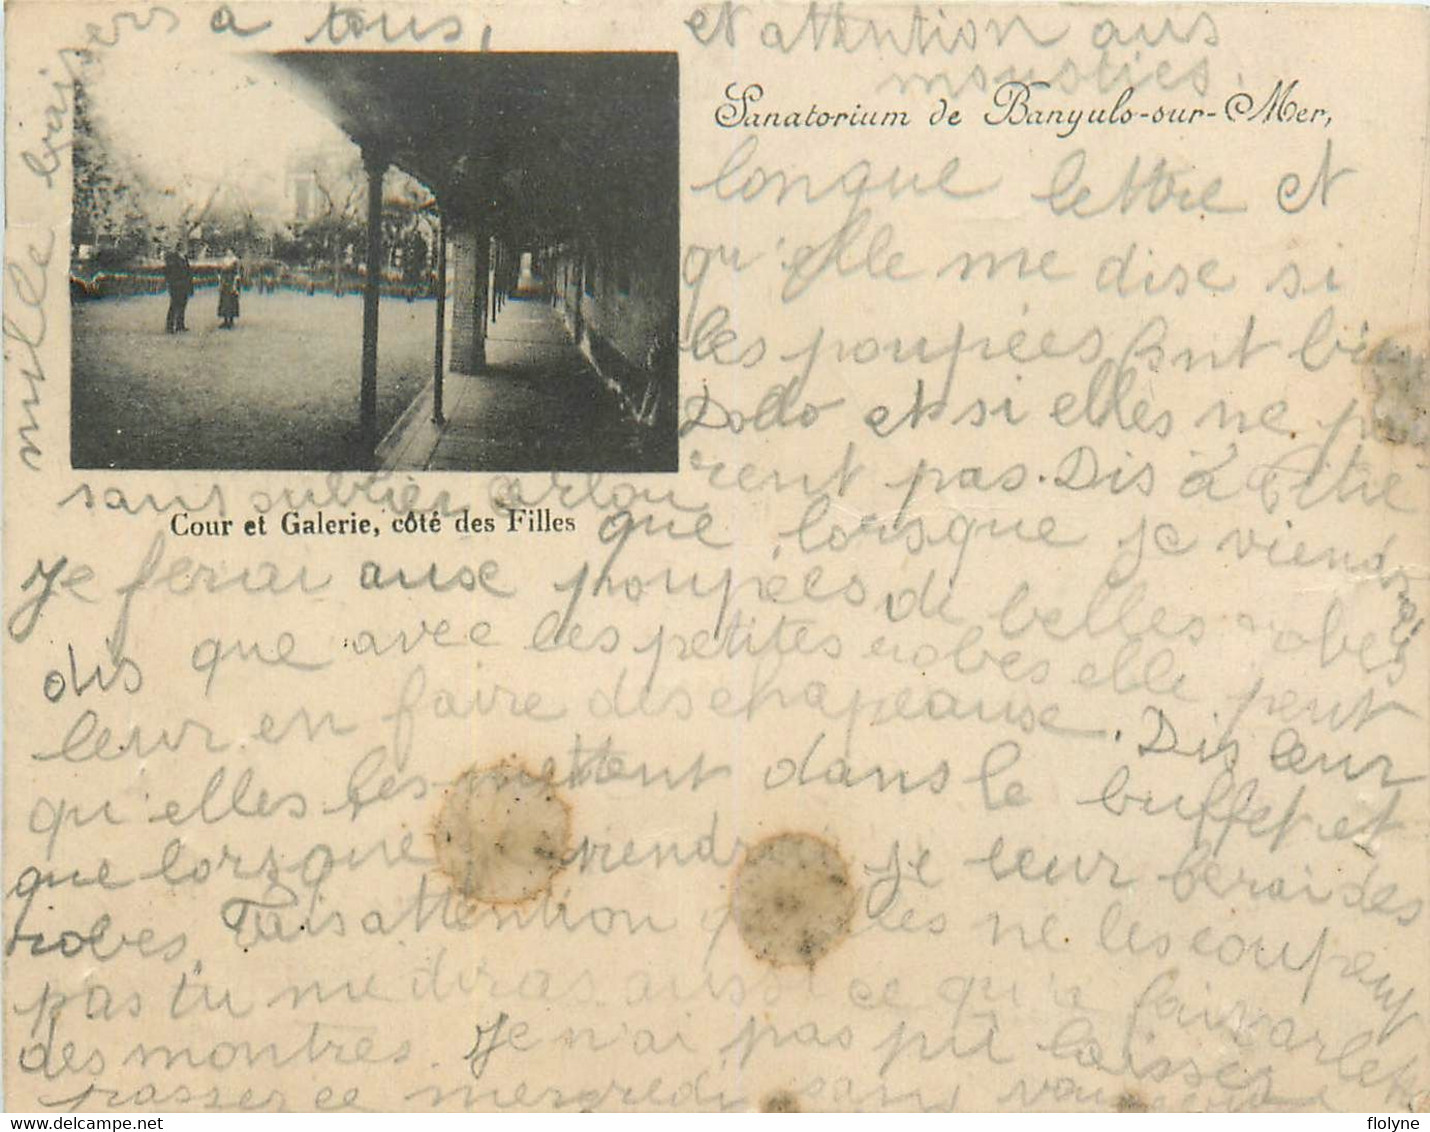 mille baisers à tous,
et attention aus
Sanatorium de Banyuls-sur-Mer,
longue lettre et
qu'elle me dise si
les poupées sont bien
Dodo et si elles ne
rent pas. Dis à
sans oublier
Cour et Galerie, côté des Filles
que lorsque je viendrai
Je ferai aux poupées de belles robes
dis que avec les petites robes elle peut
leur en faire des chapeaux. Dis leur
qu'elles les mettent dans le buffet et
que lorsque viendrai je leur ferai des
robes. Fais attention qu'elles ne les coupent
pas tu me diras aussi ce qu'
des montres. Je n'ai pas pû laisser
passer ce mercredi sans
flolyne